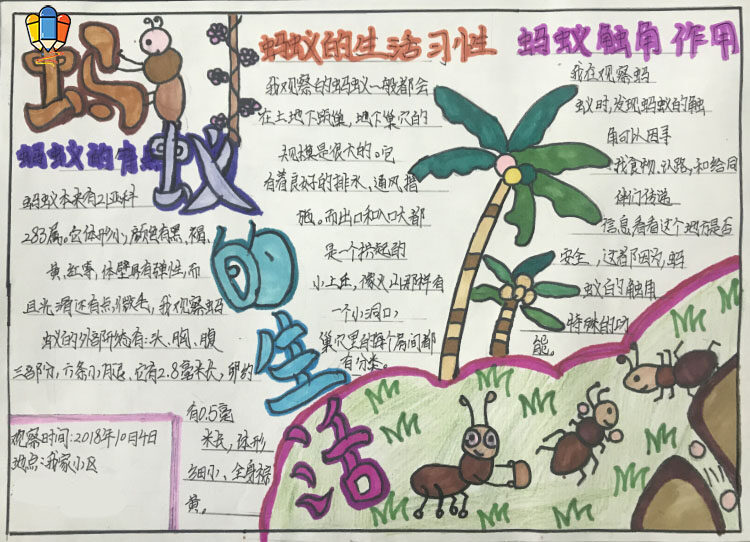 蚂蚁的生活
蚂蚁的有点
蚂蚁本来有21亚科
283属。它体形小,颜色有黑、褐、
黄、红等,体壁具有弹性,而
且光滑还有点微毛,我观察蚂
蚁的外部所有:头、胸、腹
三部分,六条小月退,它有2.8毫米长,卵约
有0.5毫
米长,体形
细小,全身棕
黄。
观察时间:2018年10月4日
地点:我家小区
蚂蚁的生活习性
我观察的蚂蚁一般都会
在土地下面巢,地下巢穴的
规模是很大的。它
有着良好的排水,通风措
施。而出口和入口大都
是一个拱起的
小土丘,像火山那样有
一个小洞口,
巢穴里的每个房间都
有分类。
蚂蚁触角作用
我在观察蚂
蚁时,发现蚂蚁的触
角可以因寻
找食物、认路,和给同
伴们传递
信息看看这个地方是否
安全,这都因为蚂
蚁的触角
特殊的功
能。